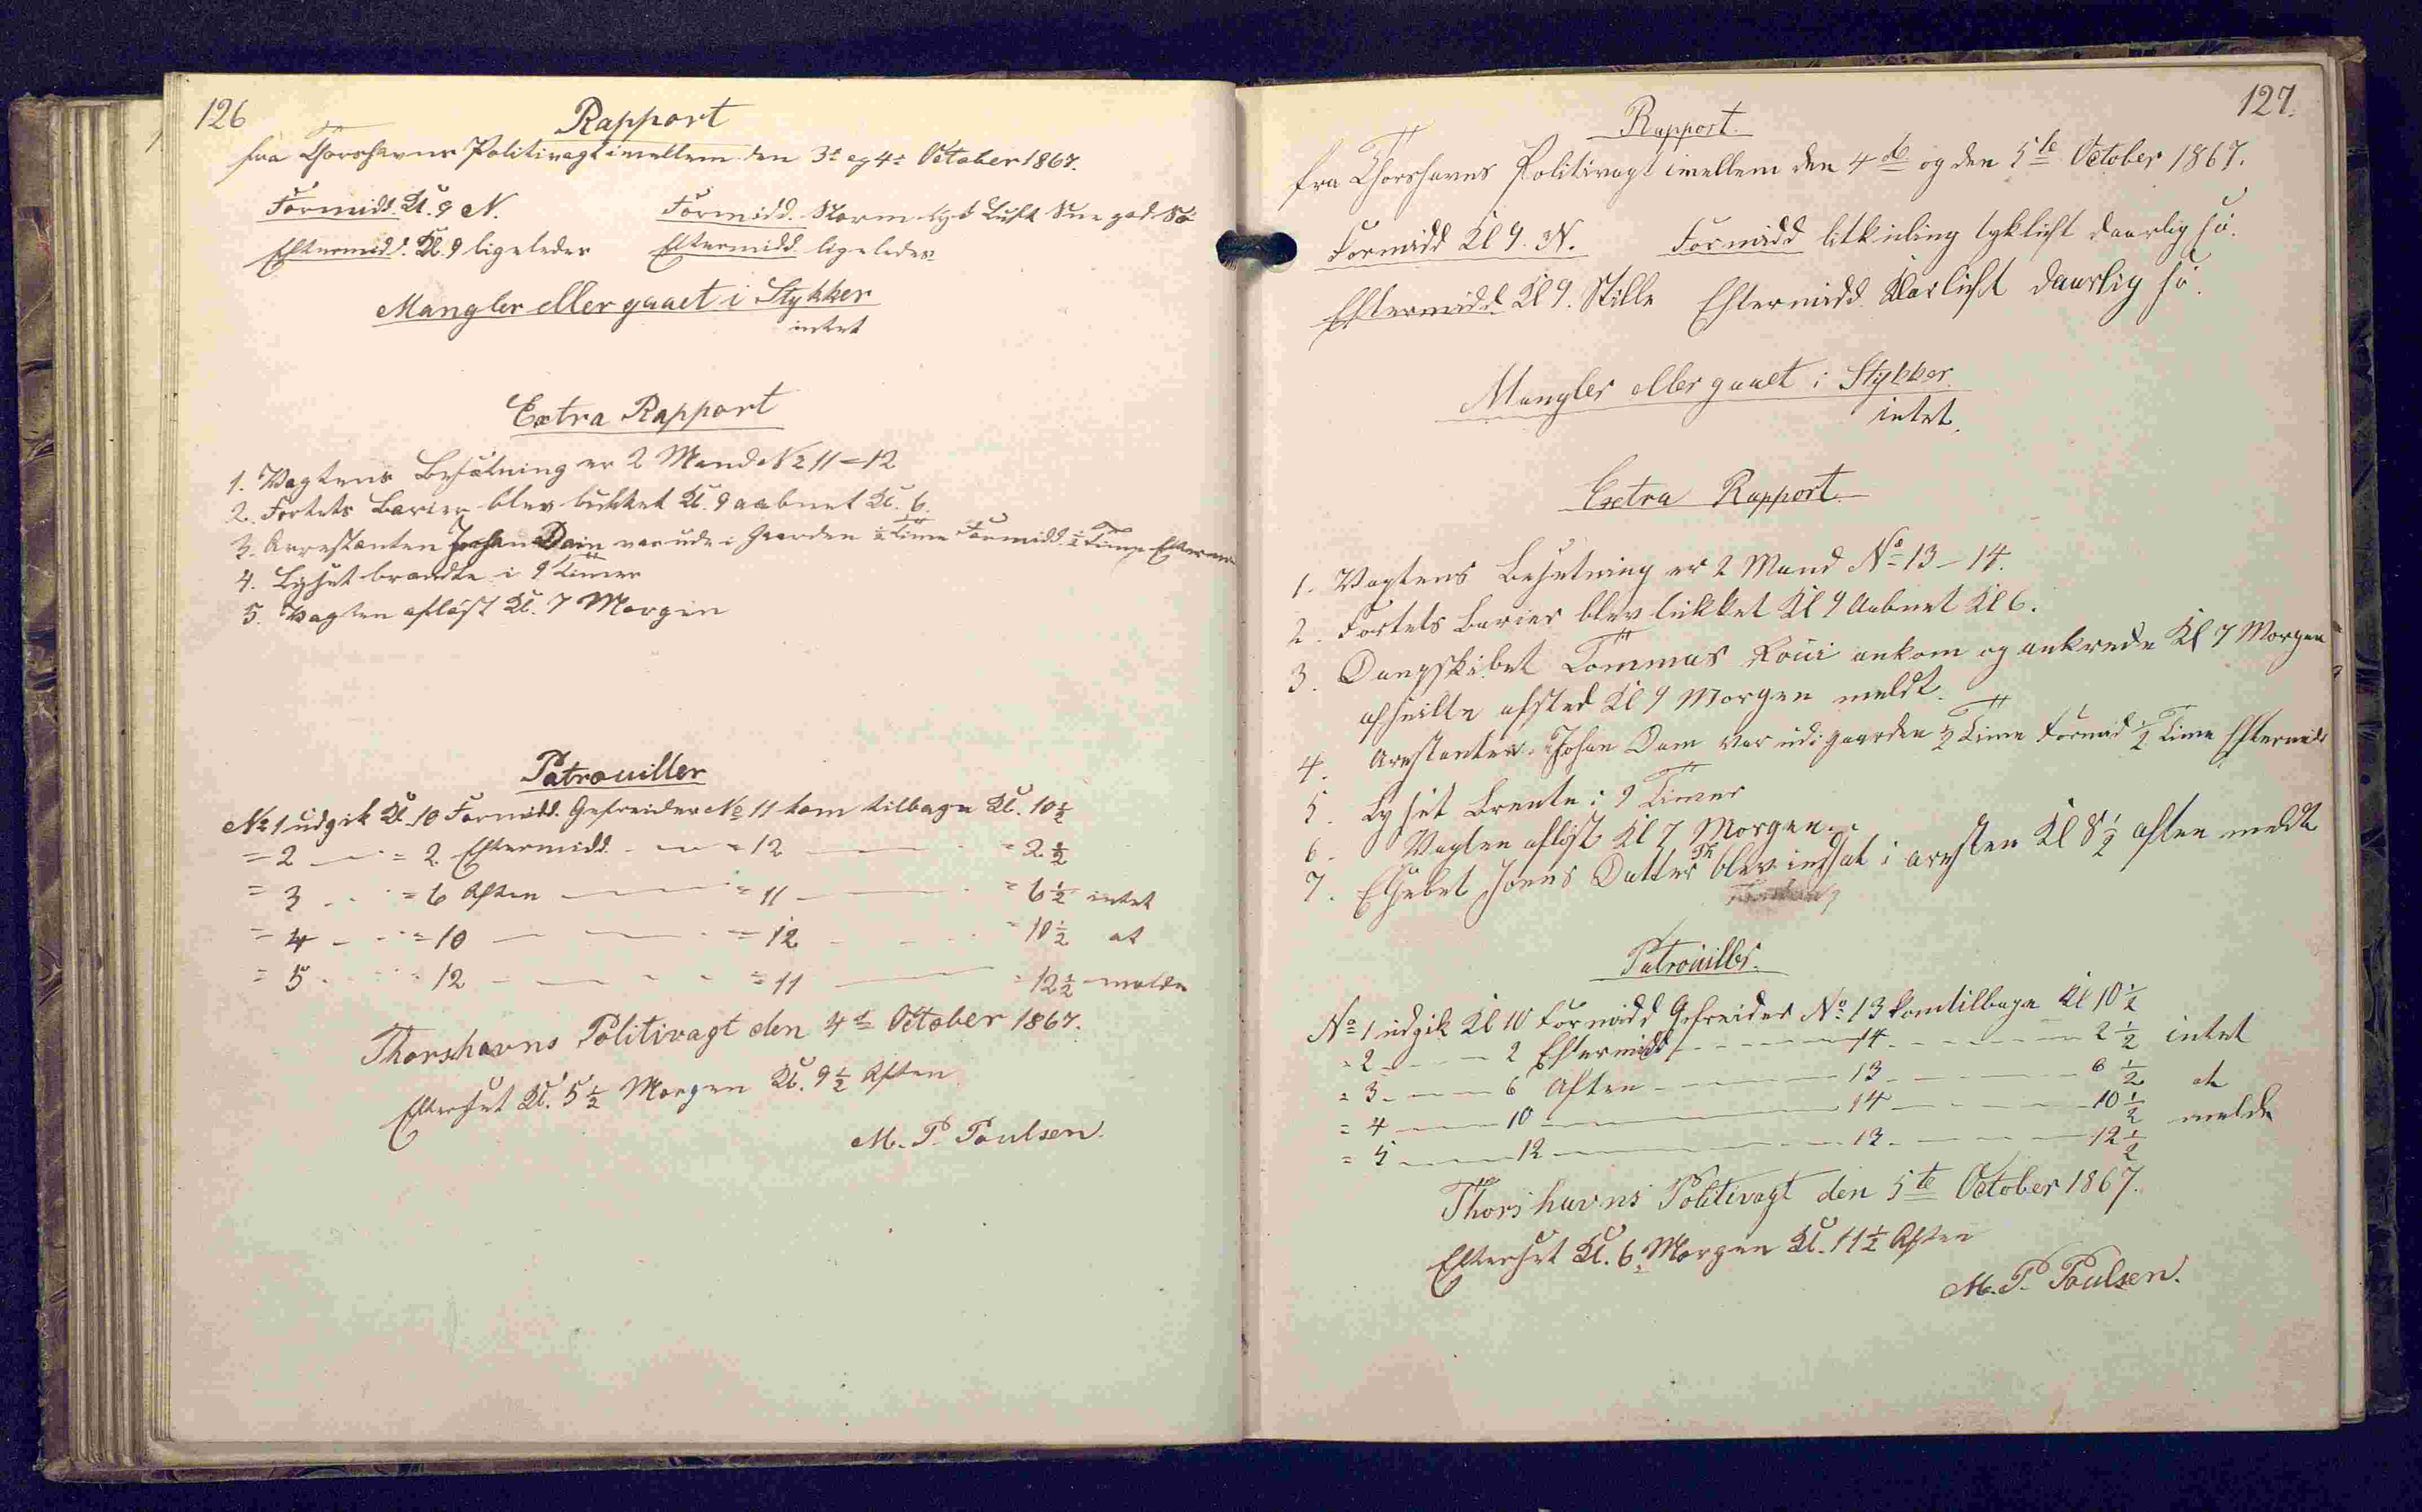 126
Rapport
fra Thorshavns Politivagt imellem den 3d og 4d October 1867.
Formidd. Kl. 9 N. Formidd. Storm tyk Luft god Sö
Eftermidd. Kl. 9 ligeledes Eftermidd. ligeledes
Mangler eller gaaet i Stykker
intet
Extra Rapport
1. Vagtens Besætning er 2 Mand No 11 = 12
2. Fortets Barier blev lukket Kl. 9 aabnet Kl. 6.
3. Arrestanten Johan Dam var ude i Gaarden ½ Time Formidd. ½ Time Efterm
4. Lyset brændte i 9 Timer
5. Vagten aflöst Kl. 7 Morgen
Patrouiller
No 1 udgik Kl. 10 Formidd. Gefreider No 11 kom tilbage Kl. 10½
= 2 — = 2 Eftermidd. — = 12 — = 2½
= 3 — = 6 Aften — = 11 — = 6½ intet
= 4 — = 10 — = 12 — = 10½ at
= 5 — 12 — = 11 — = 12½ melde
Thorshavns Politivagt den 4de October 1867.
Efterset Kl. 5½ Morgen Kl. 9½ Aften
M. P. Poulsen.
127.
Rapport.
fra Thorshavns Politivagt imellem den 4de og den 5te October 1867.
Formidd Kl 9. N. Formidd litkuling tykluft daarlig sö.
Eftermidd. Kl 9. Stille Eftermidd. Klarluft daarlig sö.
Mangler eller gaaet i Stykker.
intet.
Extra Rapport.
1. Vagtens Besetning er 2 Mand No 13 – 14.
2. Fortets Barier blev lukket Kl 9 Aabnet Kl 6.
3. Dampskibet Tommas ankom og ankrede Kl 7 Morgen
afseilte afsted Kl 9 Morgen meldt.
4. Arestanten Johan Dam var udi gaarden ½ Time Formid ½ Time Eftermid
5. Lyset Brente i 9 Timer
6. Vagten aflöst Kl 7 Morgen.
7. Elsebet Joens Datter blev indsat i aresten Kl 8½ aften meldt
Patrouiller.
No 1 udgik Kl 10 Formidd Gefreider No 13 kom tilbage Kl 10½
= 2 — 2 Eftermidd — 14 — 2½ intet
= 3 — 6 Aften — 13 — 6½ at
= 4 — 10 — 14 — 10½ melde
= 5 — 12 — 13 — 12½
Thorshavns Politivagt den 5te October 1867.
Efterset Kl. 6 Morgen Kl. 11½ Aften
M. P. Poulsen.